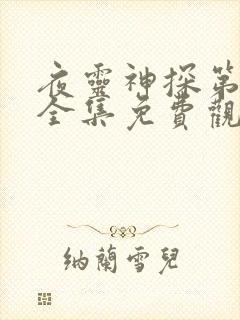 夜靈神探第
全集免費觀
納蘭雪兒